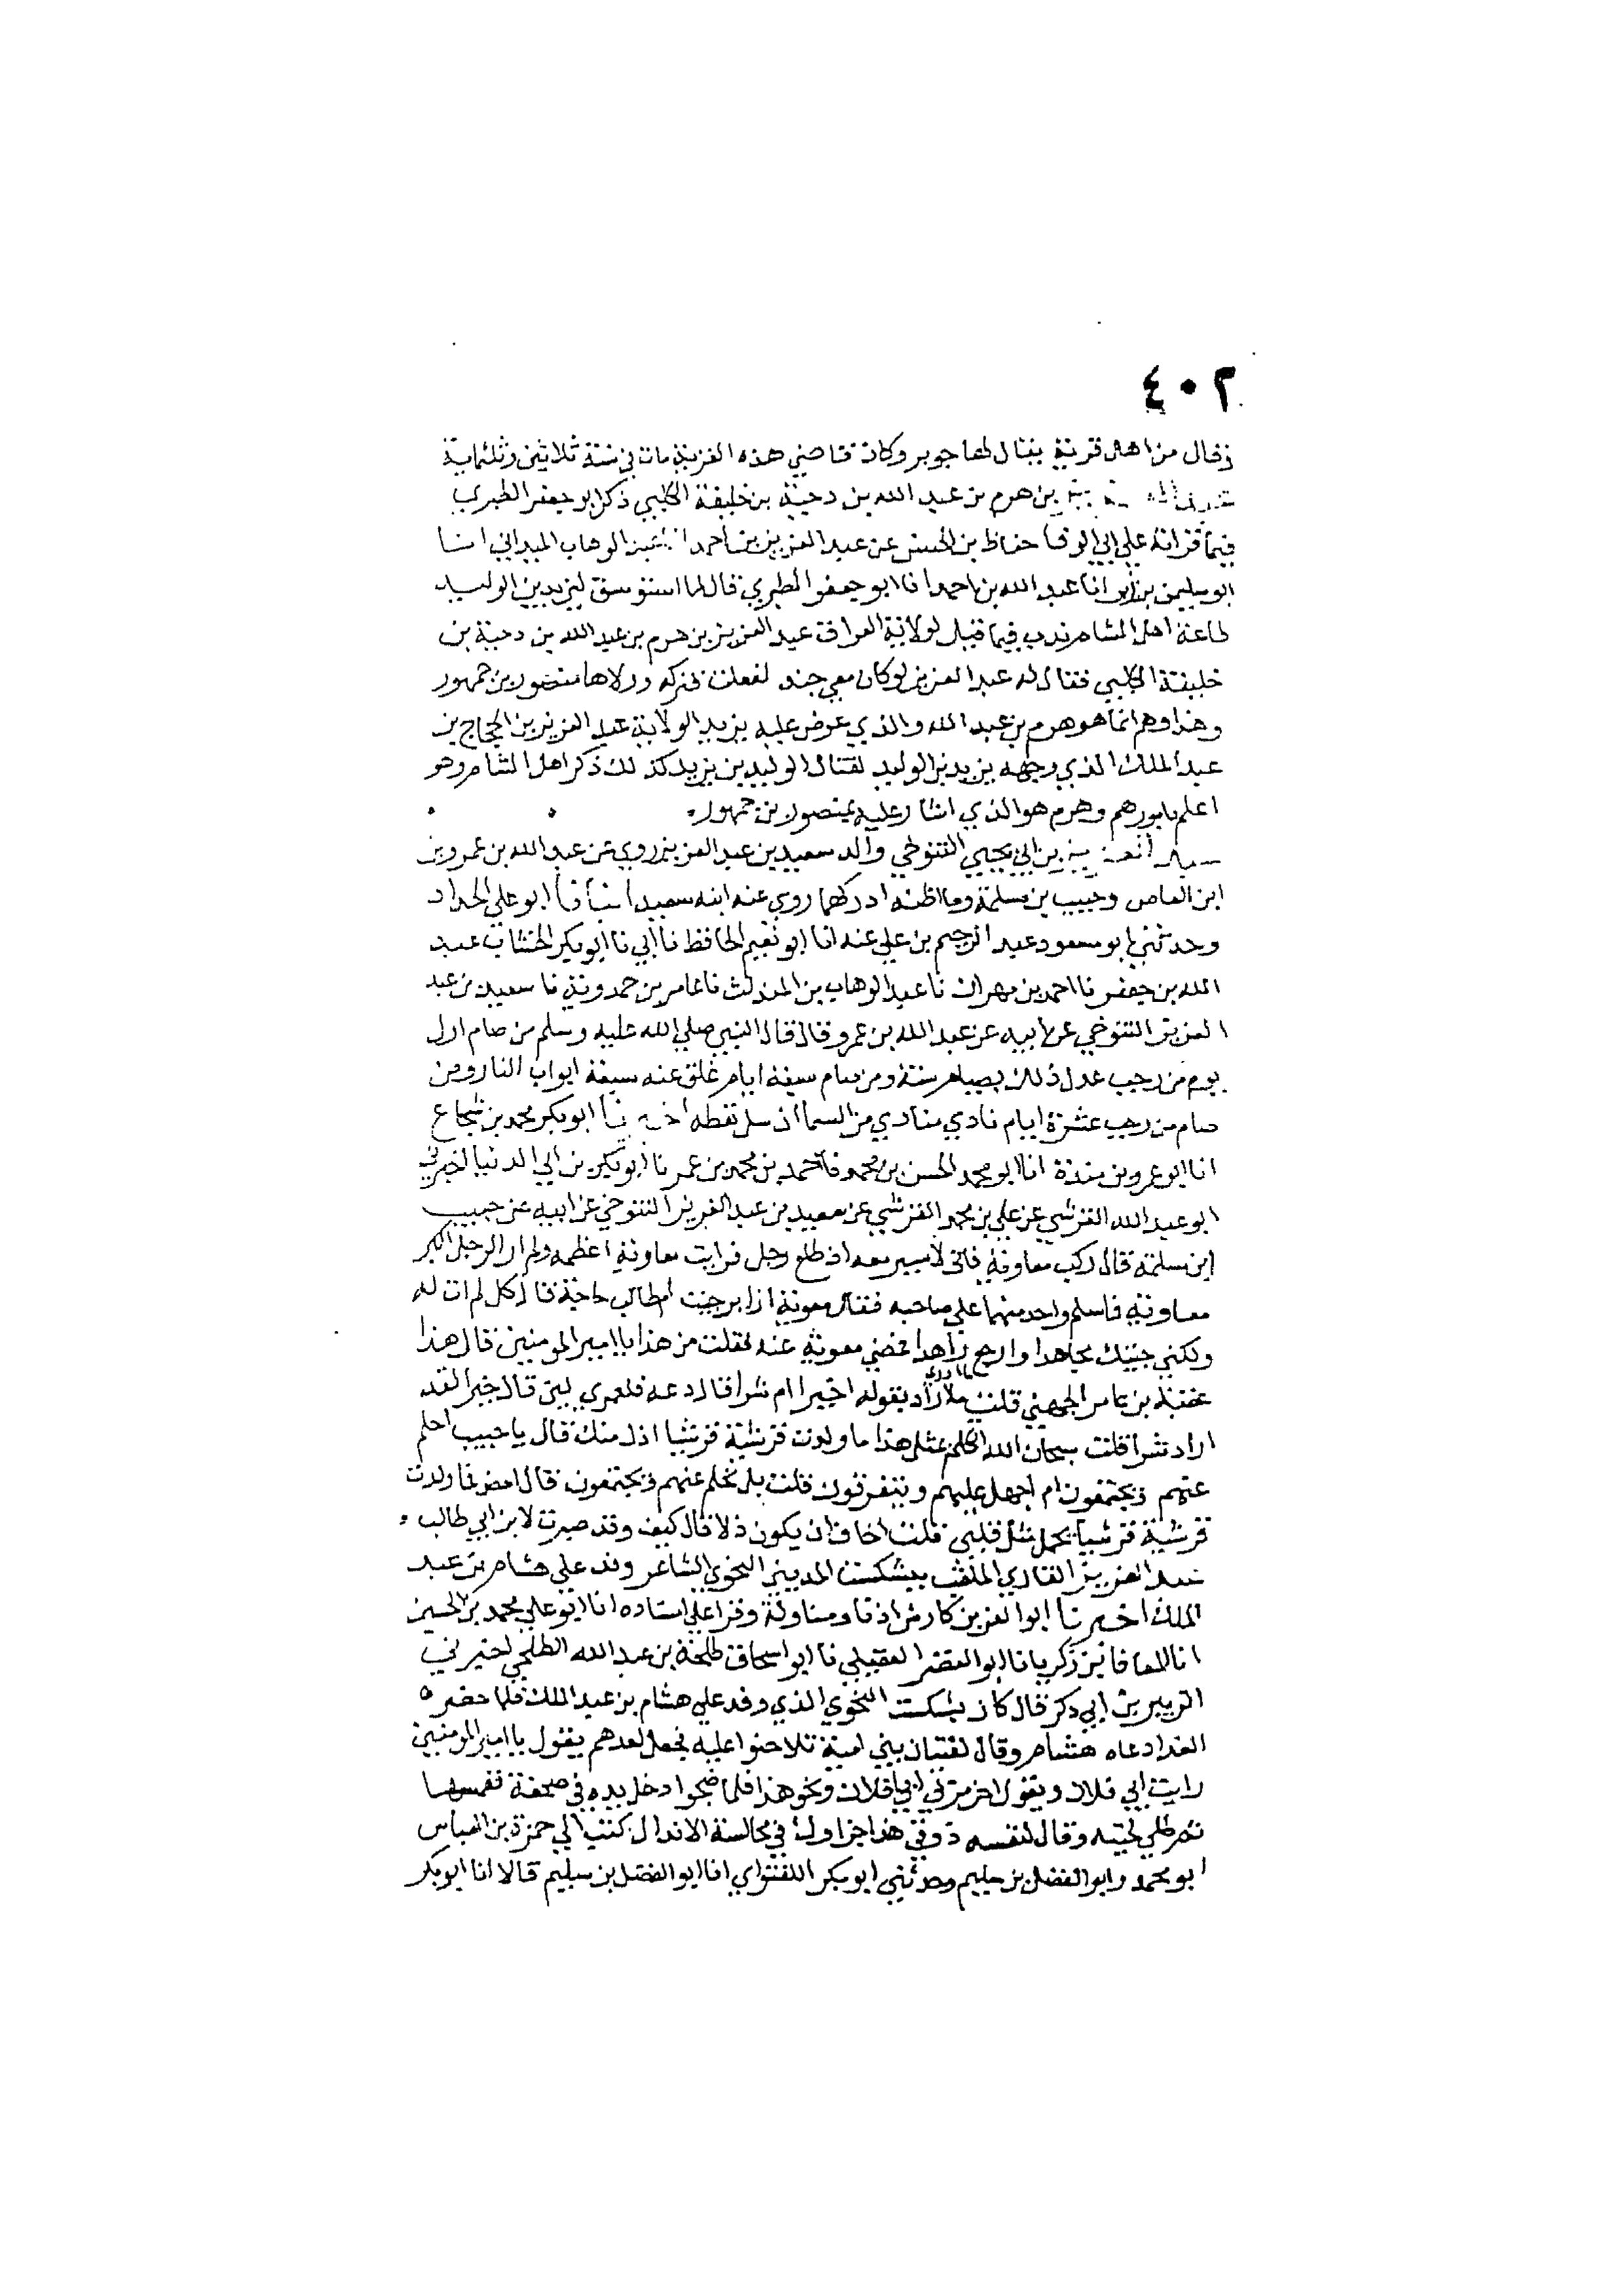 ٤٠٢
وقال من اهل قرية يقال لها جوبر وكان قاضي هذه القرية مات في سنة ثلاثين وثلثماية
بن هرم بن عبد الله بن دحية بن خليفة الكلبي ذكره ابو جعفر الطبري
فيما قراته علي ابي الوفا حفاظ بن الحسن عن عبد العزيز بن احمد انا عبد الوهاب الميداني انا
ابو سليمن بن زبر انا عبد الله بن احمد انا ابو جعفر الطبري قال لما استوسق ليزيد بن الوليد
طاعة اهل الشام ندب فيما قيل لولاية العراق عبد العزيز بن هرم بن عبد الله بن دحية بن
خليفة الكلبي فقال له عبد العزيز لو كان معي جند لفعلت فتركه وولاها منصور بن جمهور
وهذا وهم انما هو هرم بن عبد الله والذي عرض عليه يزيد الولاية عبد العزيز بن الحجاج بن
عبد الملك الذي وجهه يزيد بن الوليد لقتال الوليد بن يزيد كذلك ذكر اهل الشام وهو
اعلم بامورهم وهرم هو الذي اشار عليه بمنصور بن جمهور
بن ابي يحيي التنوخي والد سعيد بن عبد العزيز روي عن عبد الله بن عمرو بن
ابن العاص وحبيب بن مسلمة وما اظنه ادركهما روي عنه ابنه سعيد انبانا ابو علي الحداد
وحدثني ابو مسعود عبد الرحيم بن علي عنه انا ابو نعيم الحافظ نا ابي نا ابو بكر الخشاب عبد
الله بن جعفر نا احمد بن مهران نا عبد الوهاب بن المندلث نا عامر بن حمدوية نا سعيد بن عبد
العزيز التنوخي عن ابيه عن عبد الله بن عمرو قال قال النبي صلي الله عليه وسلم من صام اول
يوم من رجب عدل ذلك بصيام سنة ومن صام سبعة ايام غلق عنه سبعة ابواب النار ومن
صام من رجب عشرة ايام نادي منادي من السما ان سل تعطه اخبرنا ابو بكر محمد بن شجاع
انا ابو عمرو بن مندة انا ابو محمد الحسن بن محمد نا احمد بن محمد بن عمر نا ابو بكر بن ابي الدنيا اخبرني
ابو عبد الله القرشي عن علي بن محمد القرشي عن سعيد بن عبد العزيز التنوخي عن ابيه عن حبيب
ابن مسلمة قال ركب معاوية فاني لاسير معه اذ طلع رجل فرايت معاوية اعظمه ولم ار الرجل اكبر
معاوية فاسلم واحد منهما علي صاحبه فقال معوية ازاير جيت ام طالب حاجة قال كل لم ات له
ولكني جيتك مجاهدا وارجع زاهدا فمضي معوية عنه فقلت من هذا يا امير المومنين قال هذا
عقبة بن عامر الجهني قلت ما ادري ما اراد بقوله اخيرا ام شرا قال دعه فلعمري لين قال خير القد
اراد شرا قلت سبحان الله اتكلم بمثل هذا ما ولدت قرشية قرشيا اذل منك قال يا حبيب احلم
عنهم ويجتمعون ام اجهل عليهم ويتفرقون قلت بل تحلم عنهم ويجتمعون قال امض فما ولدت
قرشية قرشيا يحمل مثل قلبي قلت اخاف ان يكون ذلا قال كيف وقد صبرت لابن ابي طالب
عبد العزيز القاري الملقب ببشكست المديني النحوي الشاعر وفد علي هشام بن عبد
الملك اخبرنا ابو العز بن كادش اذنا ومناولة وقرا علي اسناده انا ابو علي محمد بن الحسين
انا المعافا بن زكريا نا ابو النضر العقيلي نا ابو اسحاق طلحة بن عبد الله الطلحي اخبرني
الزبير بن ابي بكر قال كان بشكست النحوي الذي وفد علي هشام بن عبد الملك فلما حضر
الغدا دعاه هشام وقال لفتيان بني امية تلاحنوا عليه فجعل احدهم يقول يا امير المومنين
رايت ابي فلان ويقول اخر مر بي ابي فلان ونحو هذا فلما ضجوا ادخل يده في صحفة فغمسها
ثم طلي لحيته وقال لنفسه ذوقي هذا جزاوك في مجالسة الانذال كتب الي حمزة بن العباس
ابو محمد وابو الفضل بن سليم وحدثني ابو بكر اللفتواي انا ابو الفضل بن سليم قالا انا ابو بكر